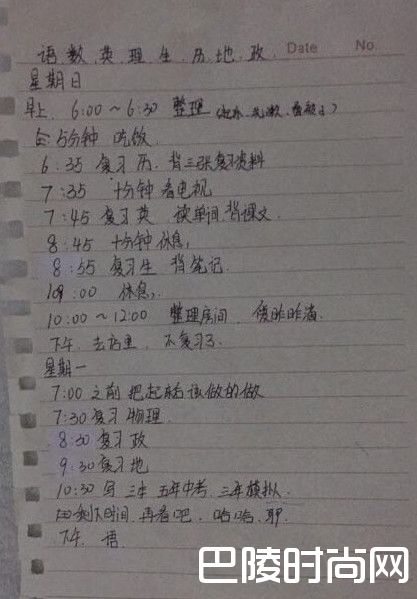 语.数.英.理.生.历.地.政. Date No.
星期日
早上 6:00～6:30 整理(洗漱
5分钟 吃饭
6:35 复习历.背三张复习资料
7:35 十分钟看电视
7:45 复习英 读单词.背课文
8:45 十分钟休息,
8:55 复习生 背笔记.
:00 休息,
10:00～12:00 整理房间.
下午.去店里.不复习了.
星期一
7:00之前把起床后该做的做
7:30复习物理.
8:30复习政
9:30复习地
10:30写三本 五年中考.三年模拟.
剩下时间.再看吧.哈哈.
下午.语.
巴陵时尚网